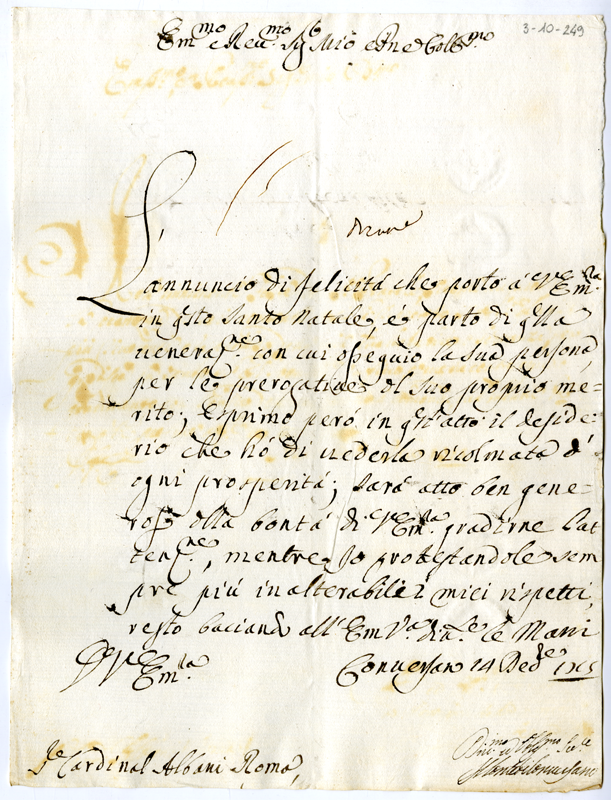 Em.mo e Reu.mo Sig.r Mio e Pne Colt.mo
3-10-249
L'annuncio di felicitá che porto á V.ra Em.za
in q.sto santo natale, é parto di q.lla
ueneraz.ne con cui ossequio la sua persona,
per le prerogatiue dl suo proprio me-
rito; Esprimo peró in q.st'atto il deside-
rio che hó di uederla ricolmata d'
ogni prosperitá; sará atto ben gene-
roso della bontá di V.ra Em.za gradirne l'at-
tenz.ne, mentre Io protestandole sem
pre piú inalterabili i miei rispetti,
resto baciando all'Em.V.a diu.te le Mani
Di V.ra Em.za
Conuersano 14 Dec.bre 1715
S.r Cardinal Albani Roma